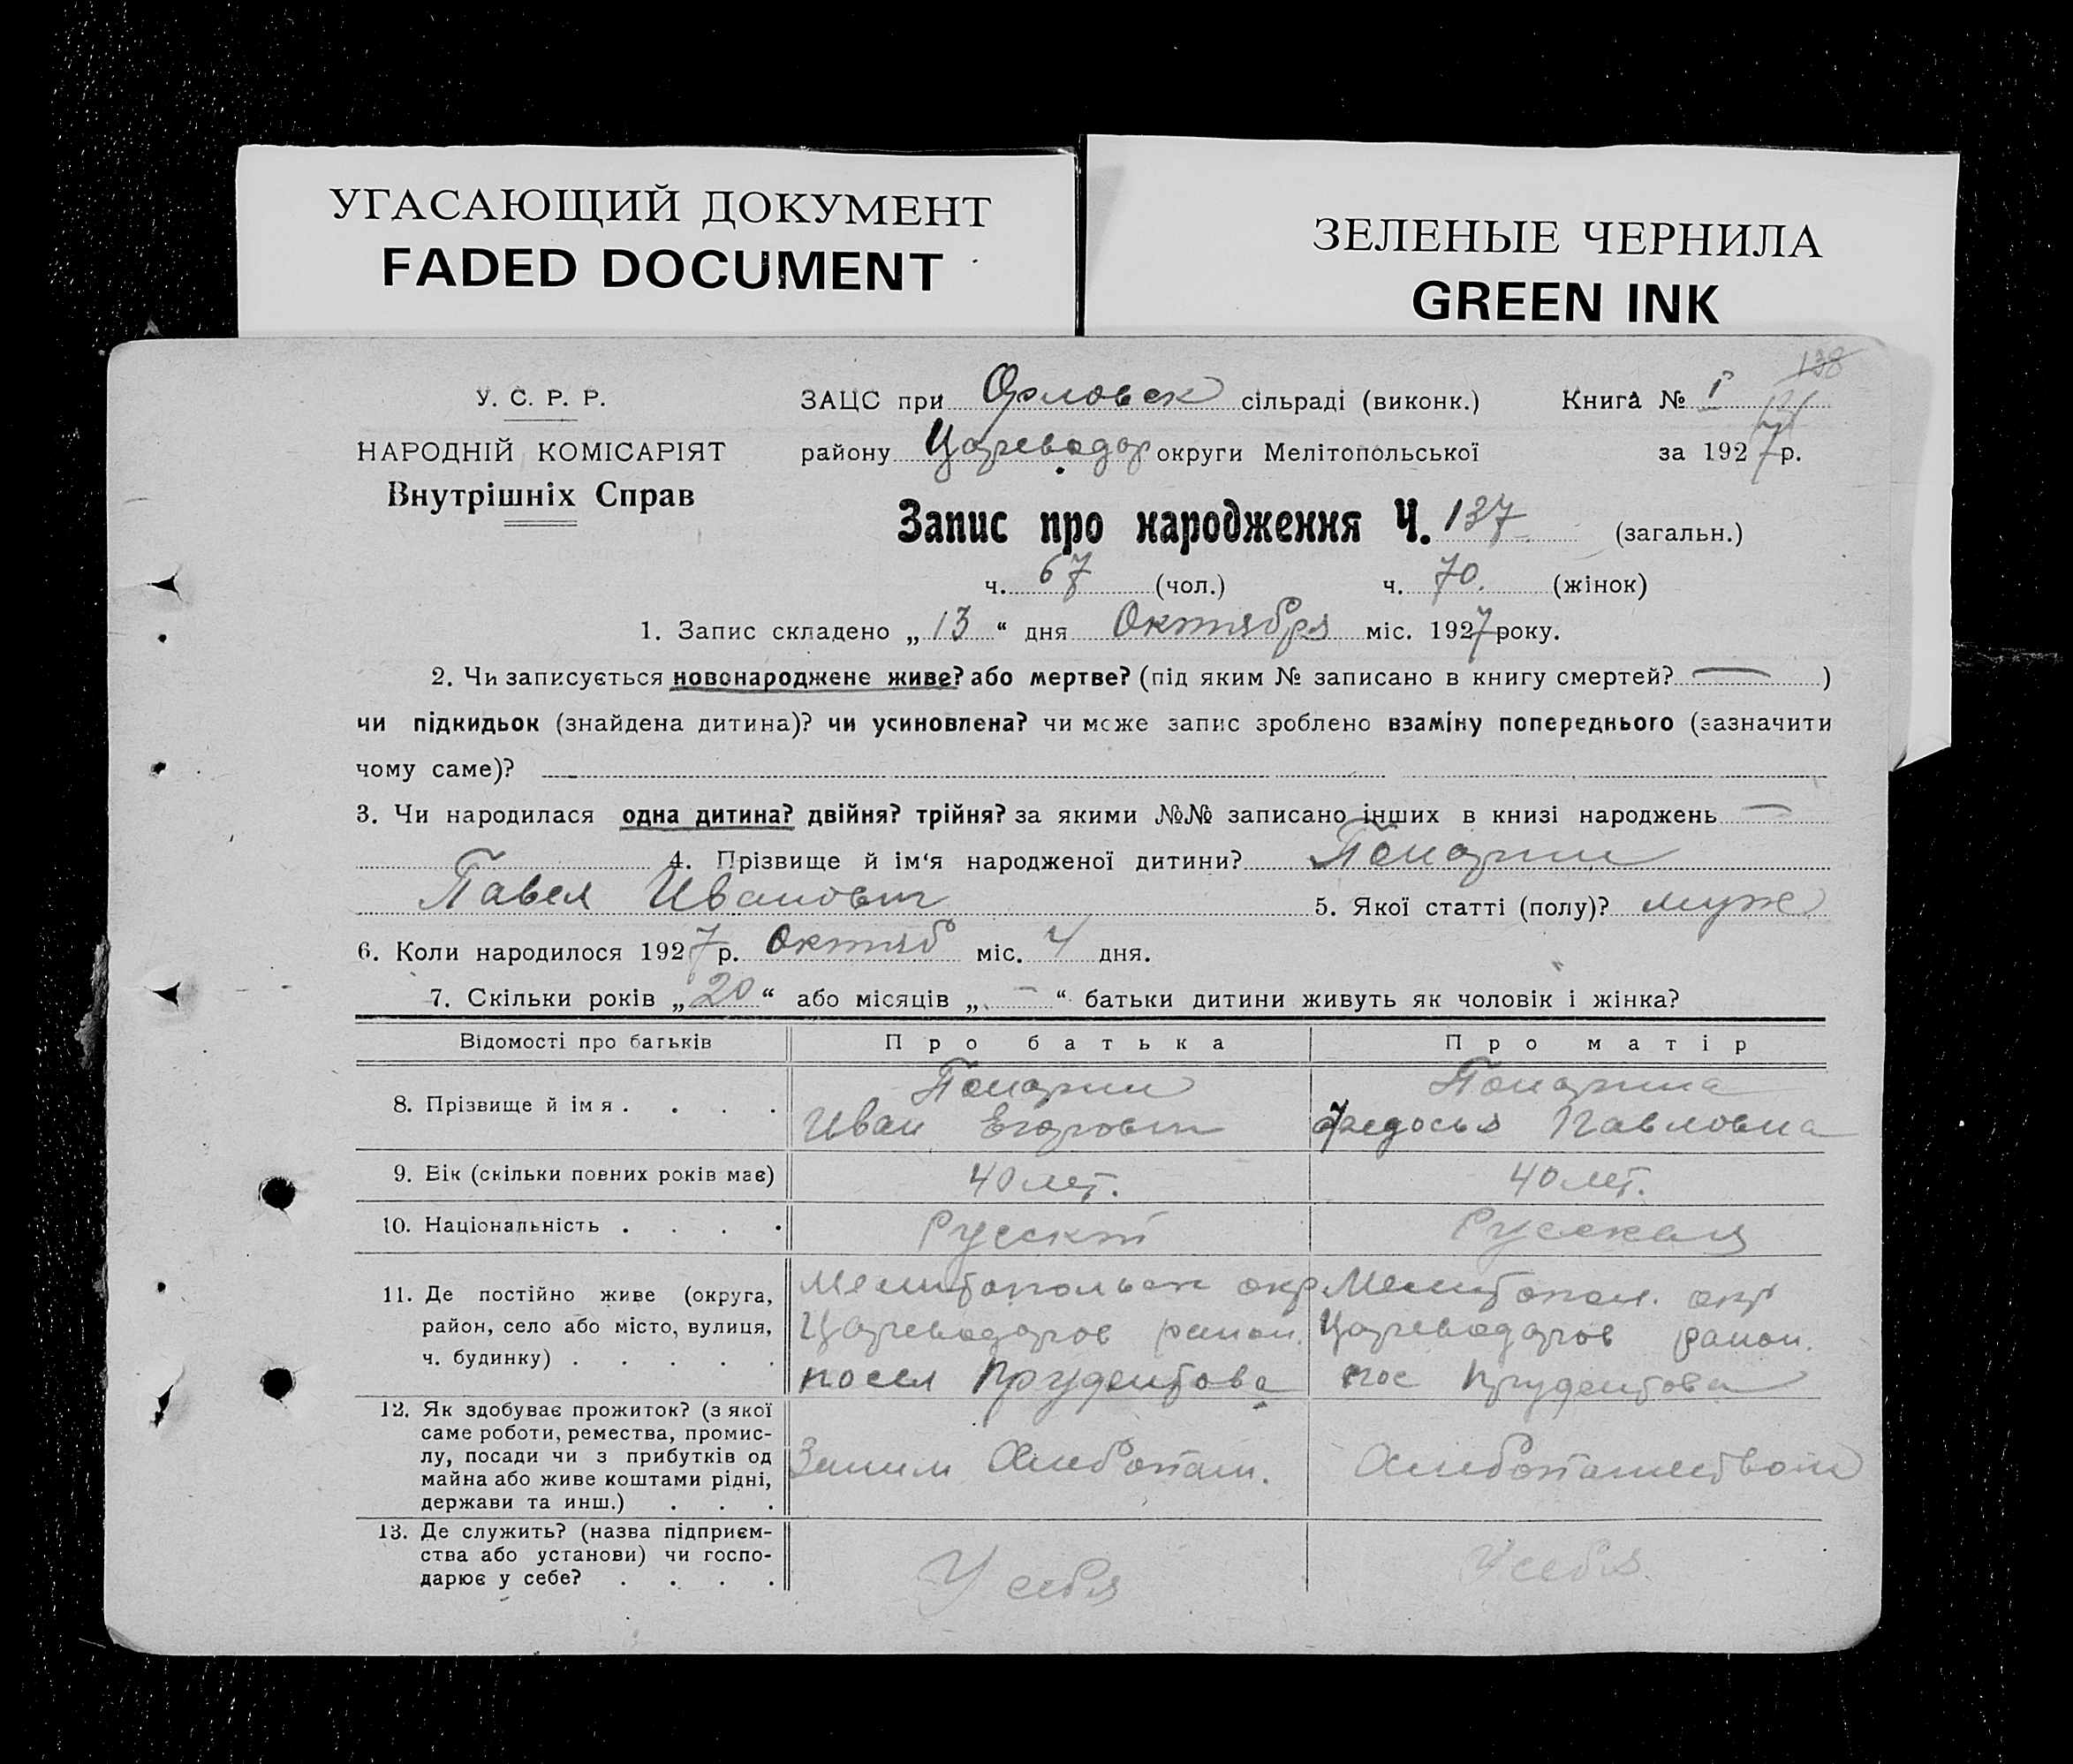 УГАСАЮЩИЙ ДОКУМЕНТ
FADED DOCUMENT
ЗЕЛЕНЫЕ ЧЕРНИЛА
GREEN INK
138
У. С. Р. Р.
НАРОДНІЙ КОМІСАРІЯТ
Внутрішніх Справ
ЗАЦС при Орловск сільраді (виконк.) Книга № I
району Цареводар округи Мелітопольської за 1927 р.
Запис про народження Ч. 137 (загальн.)
ч. 67 (чол.) ч. 70. (жінок)
1. Запис складено „13“ дня Октября міс. 1927 року.
2. Чи записується новонароджене живе? або мертве? (під яким № записано в книгу смертей? — )
чи підкидьок (знайдена дитина)? чи усиновлена? чи може запис зроблено взаміну попереднього (зазначити
чому саме)?
3. Чи народилася одна дитина? двійня? трійня? за якими №№ записано інших в книзі народжень —
4. Прізвище й ім‘я народженої дитини?
Павел Иванович 5. Якої статті (полу)? муж
6. Коли народилося 1927 р. Октяб міс. 4 дня.
7. Скільки років „20“ або місяців „—“ батьки дитини живуть як чоловік і жінка?
Відомості про батьків Про батька Про матір
8. Прізвище й імя . . . .
Иван Егорович Федосья Павловна
9. Вік (скільки повних років має) 40 лет. 40 лет.
10. Національність . . . . Русский Русская
11. Де постійно живе (округа, Мелитопольск окр Мелитопол. окр
район, село або місто, вулиця, Цареводаров район. Цареводаров район.
ч. будинку) . . . . . посел Прудентова пос Прудентова
12. Як здобуває прожиток? (з якої
саме роботи, ремества, промис-
лу, посади чи з прибутків од
майна або живе коштами рідні,
держави та инш.) . . .
Хлебопаш. Хлебопашеством
13. Де служить? (назва підприєм-
ства або установи) чи госпо-
дарює у себе? . . . .
У себя У себя